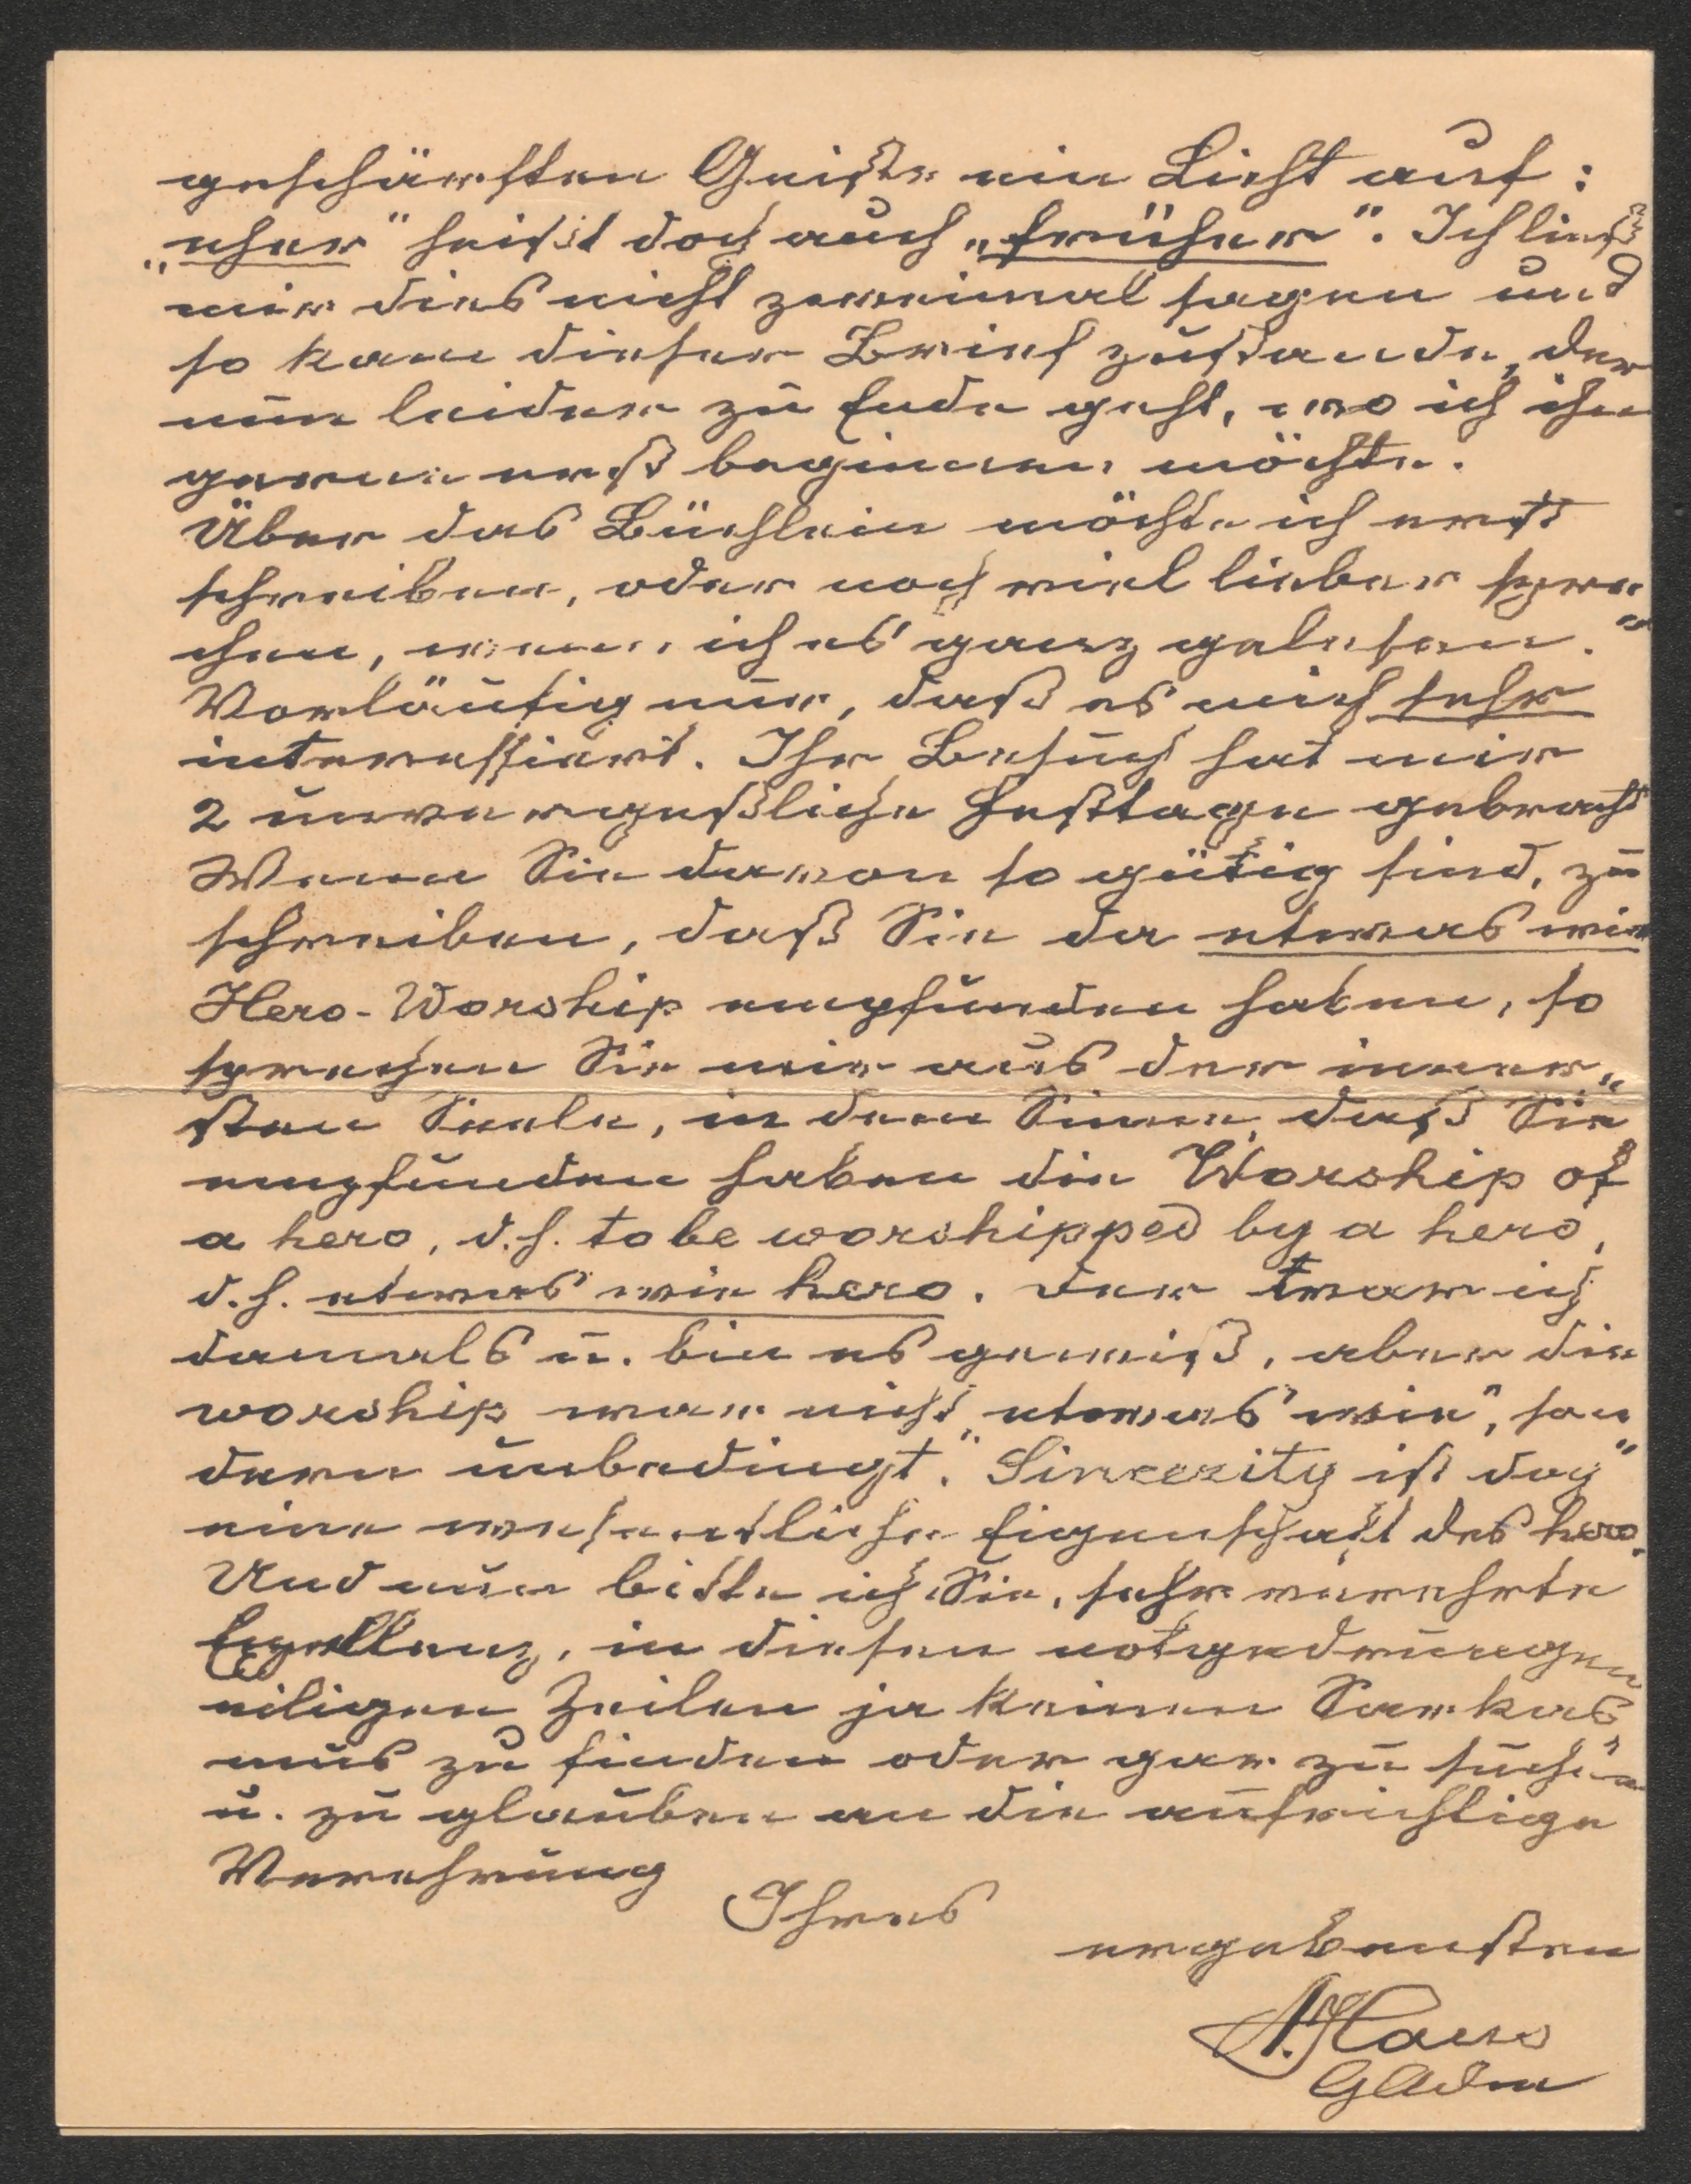 geschärften Geiste ein Licht auf:
„eher" heißt doch auch „früher". Ich ließ
mir dies nicht zweimal sagen und
so kam dieser Brief zustande, der
nun leider zu Ende geht, wo ich ihn
gerne erst beginnen möchte.
Über das Büchlein möchte ich erst
schreiben, oder noch viel lieber spre-
chen, wenn ich es ganz gelesen.
Vorläufig nur, daß es mich sehr
interessiert. Ihr Besuch hat mir
2 unvergeßliche Festtage gebracht
Wenn Sie davon so gütig sind, zu
schreiben, daß Sie da etwas wie
Hero-Worship empfunden haben, so
sprechen Sie mir aus der inner-
sten Seele, in dem Sinne, daß Sie
empfunden haben die Worship of
a hero, d.h. to be worshipped by a hero,
d.h. etwas wie hero. Der war ich
damals u. bin es gewiß, aber die
worship war nicht „etwas wie", son-
dern unbedingt. Sincerity ist doch
eine wesentliche Eigenschaft des hero.
Und nun bitte ich Sie, sehr verehrte
Exzellenz, in diesen notgedrungen
eiligen Zeilen ja keinen Sarkas-
mus zu finden oder gar zu suchen
u. zu glauben an die aufrichtige
Verehrung
Ihres
ergebensten
A. Haus
GAdm